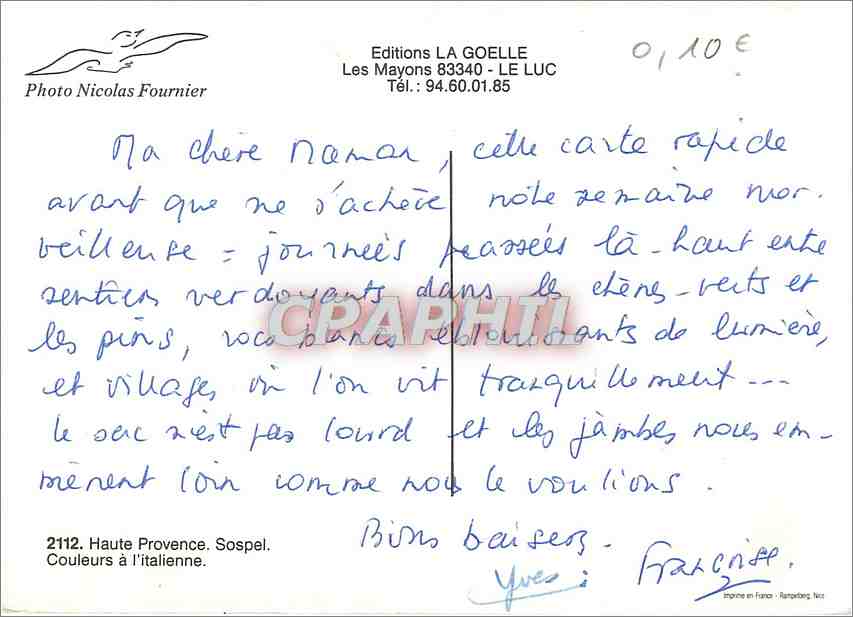 Photo Nicolas Fournier
Editions LA GOELLE
Les Mayons 83340 - LE LUC
Tél.: 94.60.01.85
0,10 €
Ma chère Maman, cette carte rapide
avant que ne s'achève notre semaine mer-
veilleuse = journées passées là-haut entre
sentiers verdoyants dans les chênes-verts et
les pins, rocs blancs éblouissants de lumière,
et villages où l'on vit tranquillement ---
le sac n'est pas lourd et les jambes nous em-
mènent loin comme nous le voulions.
Bons baisers.
Yves. Françoise.
CPAPHIL
2112. Haute Provence. Sospel.
Couleurs à l'italienne.
Imprimé en France - Rampelberg, Nice